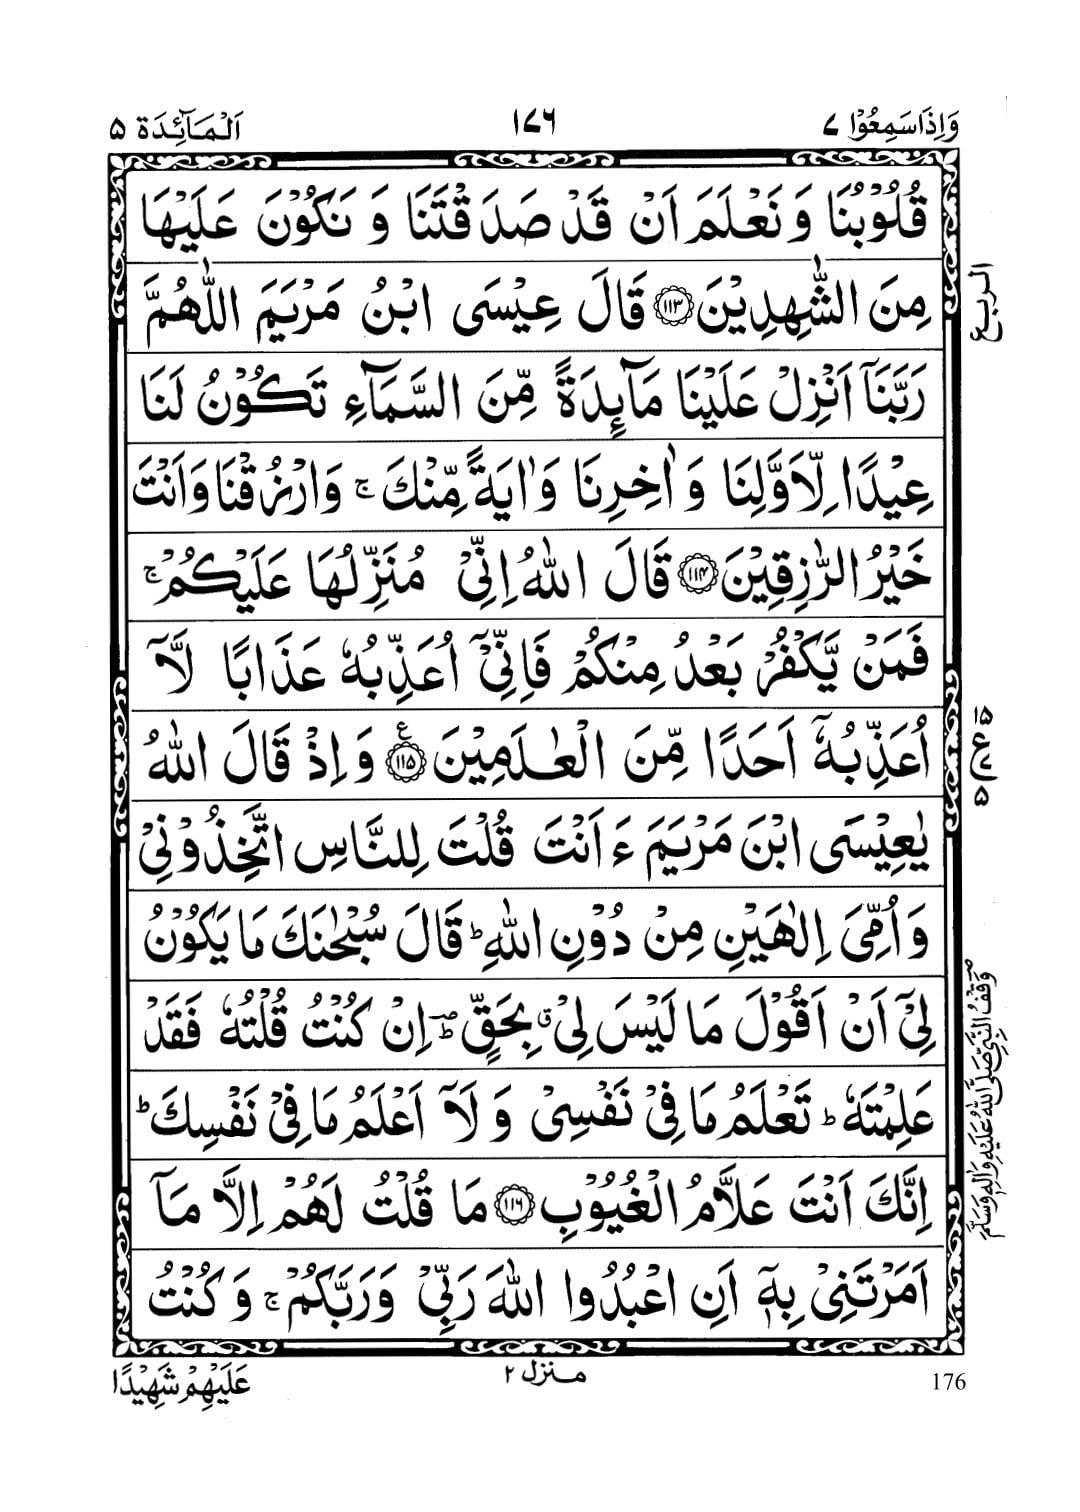 وَاِذَا سَمِعُوْا ۷
۱۷۶
اَلْمَآئِدَة ۵
قُلُوْبُنَا وَ نَعْلَمَ اَنْ قَدْ صَدَقْتَنَا وَ نَكُوْنَ عَلَيْهَا
مِنَ الشّٰهِدِيْنَ ﴿۱۱۳﴾ قَالَ عِيْسَى ابْنُ مَرْيَمَ اللّٰهُمَّ
رَبَّنَاۤ اَنْزِلْ عَلَيْنَا مَآئِدَةً مِّنَ السَّمَآءِ تَكُوْنُ لَنَا
عِيْدًا لِّاَوَّلِنَا وَ اٰخِرِنَا وَ اٰيَةً مِّنْكَ ۚ وَارْزُقْنَا وَاَنْتَ
خَيْرُ الرّٰزِقِيْنَ ﴿۱۱۴﴾ قَالَ اللّٰهُ اِنِّيْ مُنَزِّلُهَا عَلَيْكُمْ ۚ
فَمَنْ يَّكْفُرْ بَعْدُ مِنْكُمْ فَاِنِّيْۤ اُعَذِّبُهٗ عَذَابًا لَّاۤ
اُعَذِّبُهٗۤ اَحَدًا مِّنَ الْعٰلَمِيْنَ ﴿۱۱۵﴾ ع وَ اِذْ قَالَ اللّٰهُ
يٰعِيْسَى ابْنَ مَرْيَمَ ءَاَنْتَ قُلْتَ لِلنَّاسِ اتَّخِذُوْنِيْ
وَ اُمِّيَ اِلٰهَيْنِ مِنْ دُوْنِ اللّٰهِ ؕ قَالَ سُبْحٰنَكَ مَا يَكُوْنُ
لِيْۤ اَنْ اَقُوْلَ مَا لَيْسَ لِيْ ۗ بِحَقٍّ ؕ اِنْ كُنْتُ قُلْتُهٗ فَقَدْ
عَلِمْتَهٗ ؕ تَعْلَمُ مَا فِيْ نَفْسِيْ وَ لَاۤ اَعْلَمُ مَا فِيْ نَفْسِكَ ؕ
اِنَّكَ اَنْتَ عَلَّامُ الْغُيُوْبِ ﴿۱۱۶﴾ مَا قُلْتُ لَهُمْ اِلَّا مَاۤ
اَمَرْتَنِيْ بِهٖۤ اَنِ اعْبُدُوا اللّٰهَ رَبِّيْ وَرَبَّكُمْ ۚ وَ كُنْتُ
الربع
۱۵
ع
۵
وَقْفُ النَّبِيِّ صَلَّى اللّٰهُ عَلَيْهِ وَاٰلِهٖ وَسَلَّمَ
176
منزل ۲
عَلَيْهِمْ شَهِيْدًا